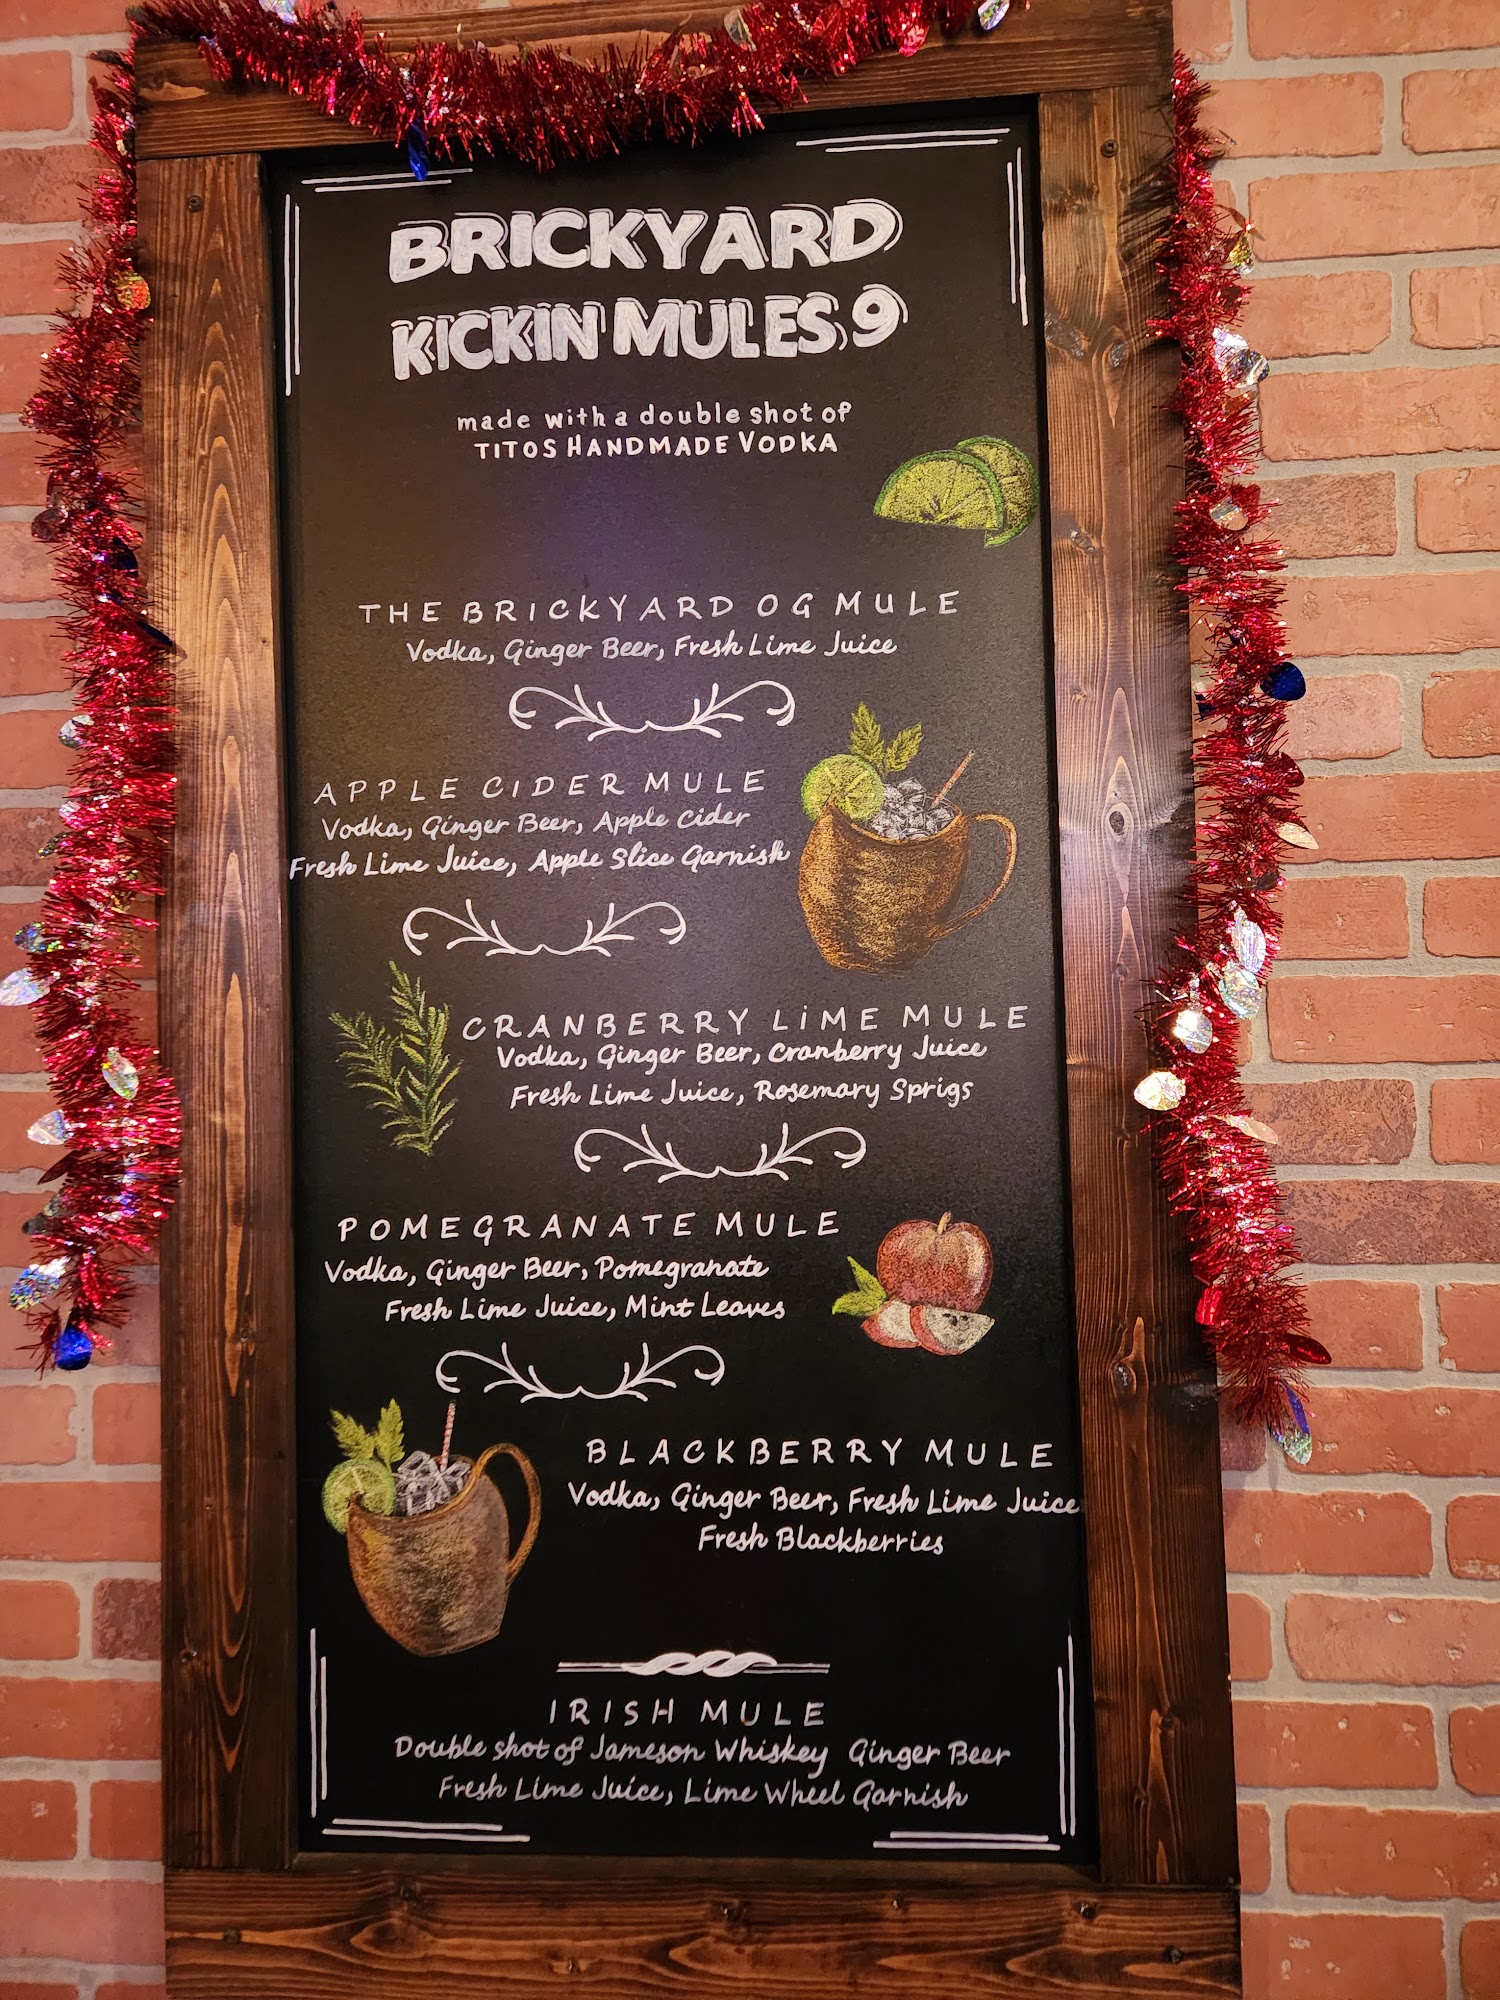 BRICKYARD
KICKIN MULES 9
made with a double shot of
TITOS HANDMADE VODKA
THE BRICKYARD OG MULE
Vodka, Ginger Beer, Fresh Lime Juice
APPLE CIDER MULE
Vodka, Ginger Beer, Apple Cider
Fresh Lime Juice, Apple Slice Garnish
CRANBERRY LIME MULE
Vodka, Ginger Beer, Cranberry Juice
Fresh Lime Juice, Rosemary Sprigs
POMEGRANATE MULE
Vodka, Ginger Beer, Pomegranate
Fresh Lime Juice, Mint Leaves
BLACKBERRY MULE
Vodka, Ginger Beer, Fresh Lime Juice
Fresh Blackberries
IRISH MULE
Double shot of Jameson Whiskey Ginger Beer
Fresh Lime Juice, Lime Wheel Garnish